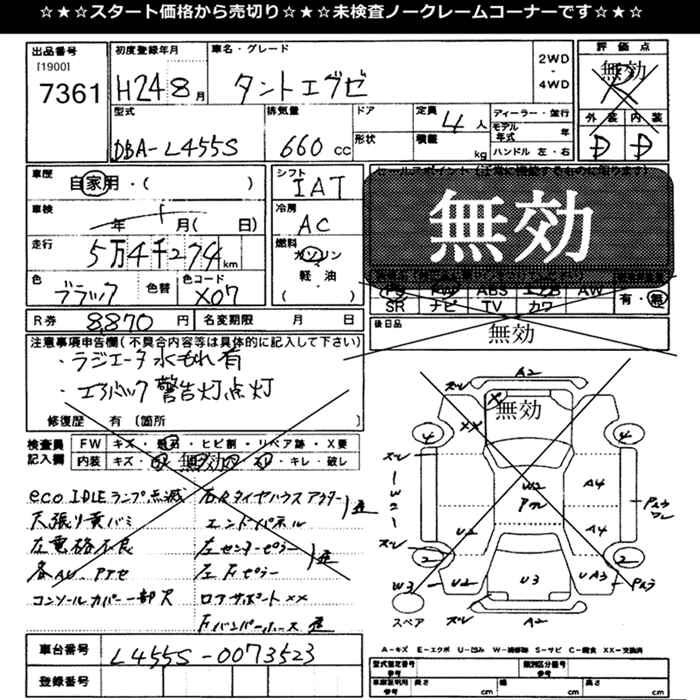 ☆★☆★スタート価格から売切り☆★☆★未検査ノークレームコーナーです☆★☆★
出品番号 [1900] 7361
初度登録年月 H24 8月
車名・グレード タントエグゼ
2WD・4WD
評価点 無効
外装 D 内装 D
型式 DBA-L455S
排気量 660cc
ドア 形状
定員 4人
積載 kg
ディーラー・並行
モデル年式 年
ハンドル 左・右
車歴 自家用・( )
シフト IAT
セールスポイント
無効
車検 年 月( 日)
冷房 AC
走行 5万4千274km
燃料 ガソリン 軽・油 ( )
色 ブラック 色替 色コード X07
PS ABS AW
SR ナビ TV カワ
有・無
R券 8,870円
名変期限 月 日
後日品
無効
注意事項申告欄(不具合内容等は具体的に記入して下さい)
・ラジエータ水もれ有
・エアバック警告灯点灯
修復歴 有〔箇所
検査員記入欄
FW キズ・飛石・ヒビ割・リペア跡・X要
内装 キズ・ 無効 ・キレ・破し
eco IDLEランプ点滅
天張り黄バミ
コンソールカバー一部欠
エンドパネル
左センターピラー
コアサポートXX
無効
A2
ズレ
XX
4
4
ズレ
W2
A4
W2
U2
A4
ズレ
2
2
W3
U2
U3
UA3
スペア
ズレ
A2
A-キズ E-エクボ U-凹み W-補修跡 S-サビ C-腐食 XX-交換済
車台番号 L455S-0073523
登録番号
型式指定番号 参考
類別区分番号 参考
長さ cm 幅 cm 高さ cm